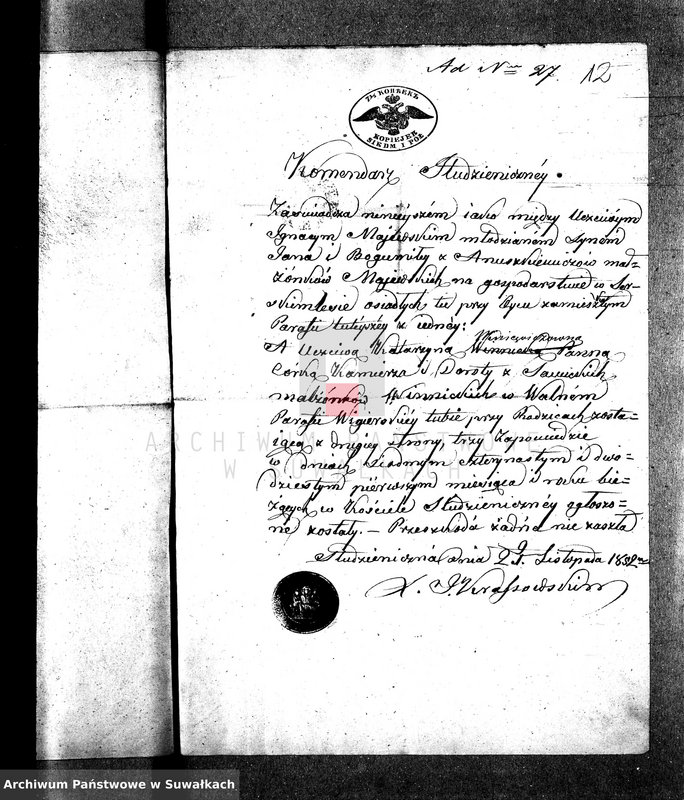 Ad Nrm 27. 12
7½ КОПѢЕКЪ
KOPIEJEK
SIEDM I PÓŁ
Komendarz Studzieniczney.
Zaświadcza ninieyszém iako między Uczciwym
Ignacym Majewskim młodzianem Synem
Jana i Bogumiły z Anuszkiewiczow mał=
żonków Majewskich na gospodarstwie w
osiadłych tu przy Oycu zamieszkałym
Parafii tutéyszéy z iednéy:
A Uczciwą Katarzyną Winiewiczowna Panną
Córką Kazmierza i Doroty z Sawickich
małżonków Winnickich w Walném
Parafii Wigierskiéy tudzież przy Rodzicach zosta=
iącą z drugiéy strony, trzy Zapowiedzie
w dniach siódmym czternastym i dwu=
dziestym pierwszym miesiąca i roku bie=
żących w Kościele Studzieniczney ogłoszo=
né zostały. — Przeszkoda żadna nie zaszła
Studzieniczna dnia Listopada 18
X. J. Krassowski
ARCHIWUM PAŃSTWOWE
W SUWAŁKACH
Archiwum Państwowe w Suwałkach